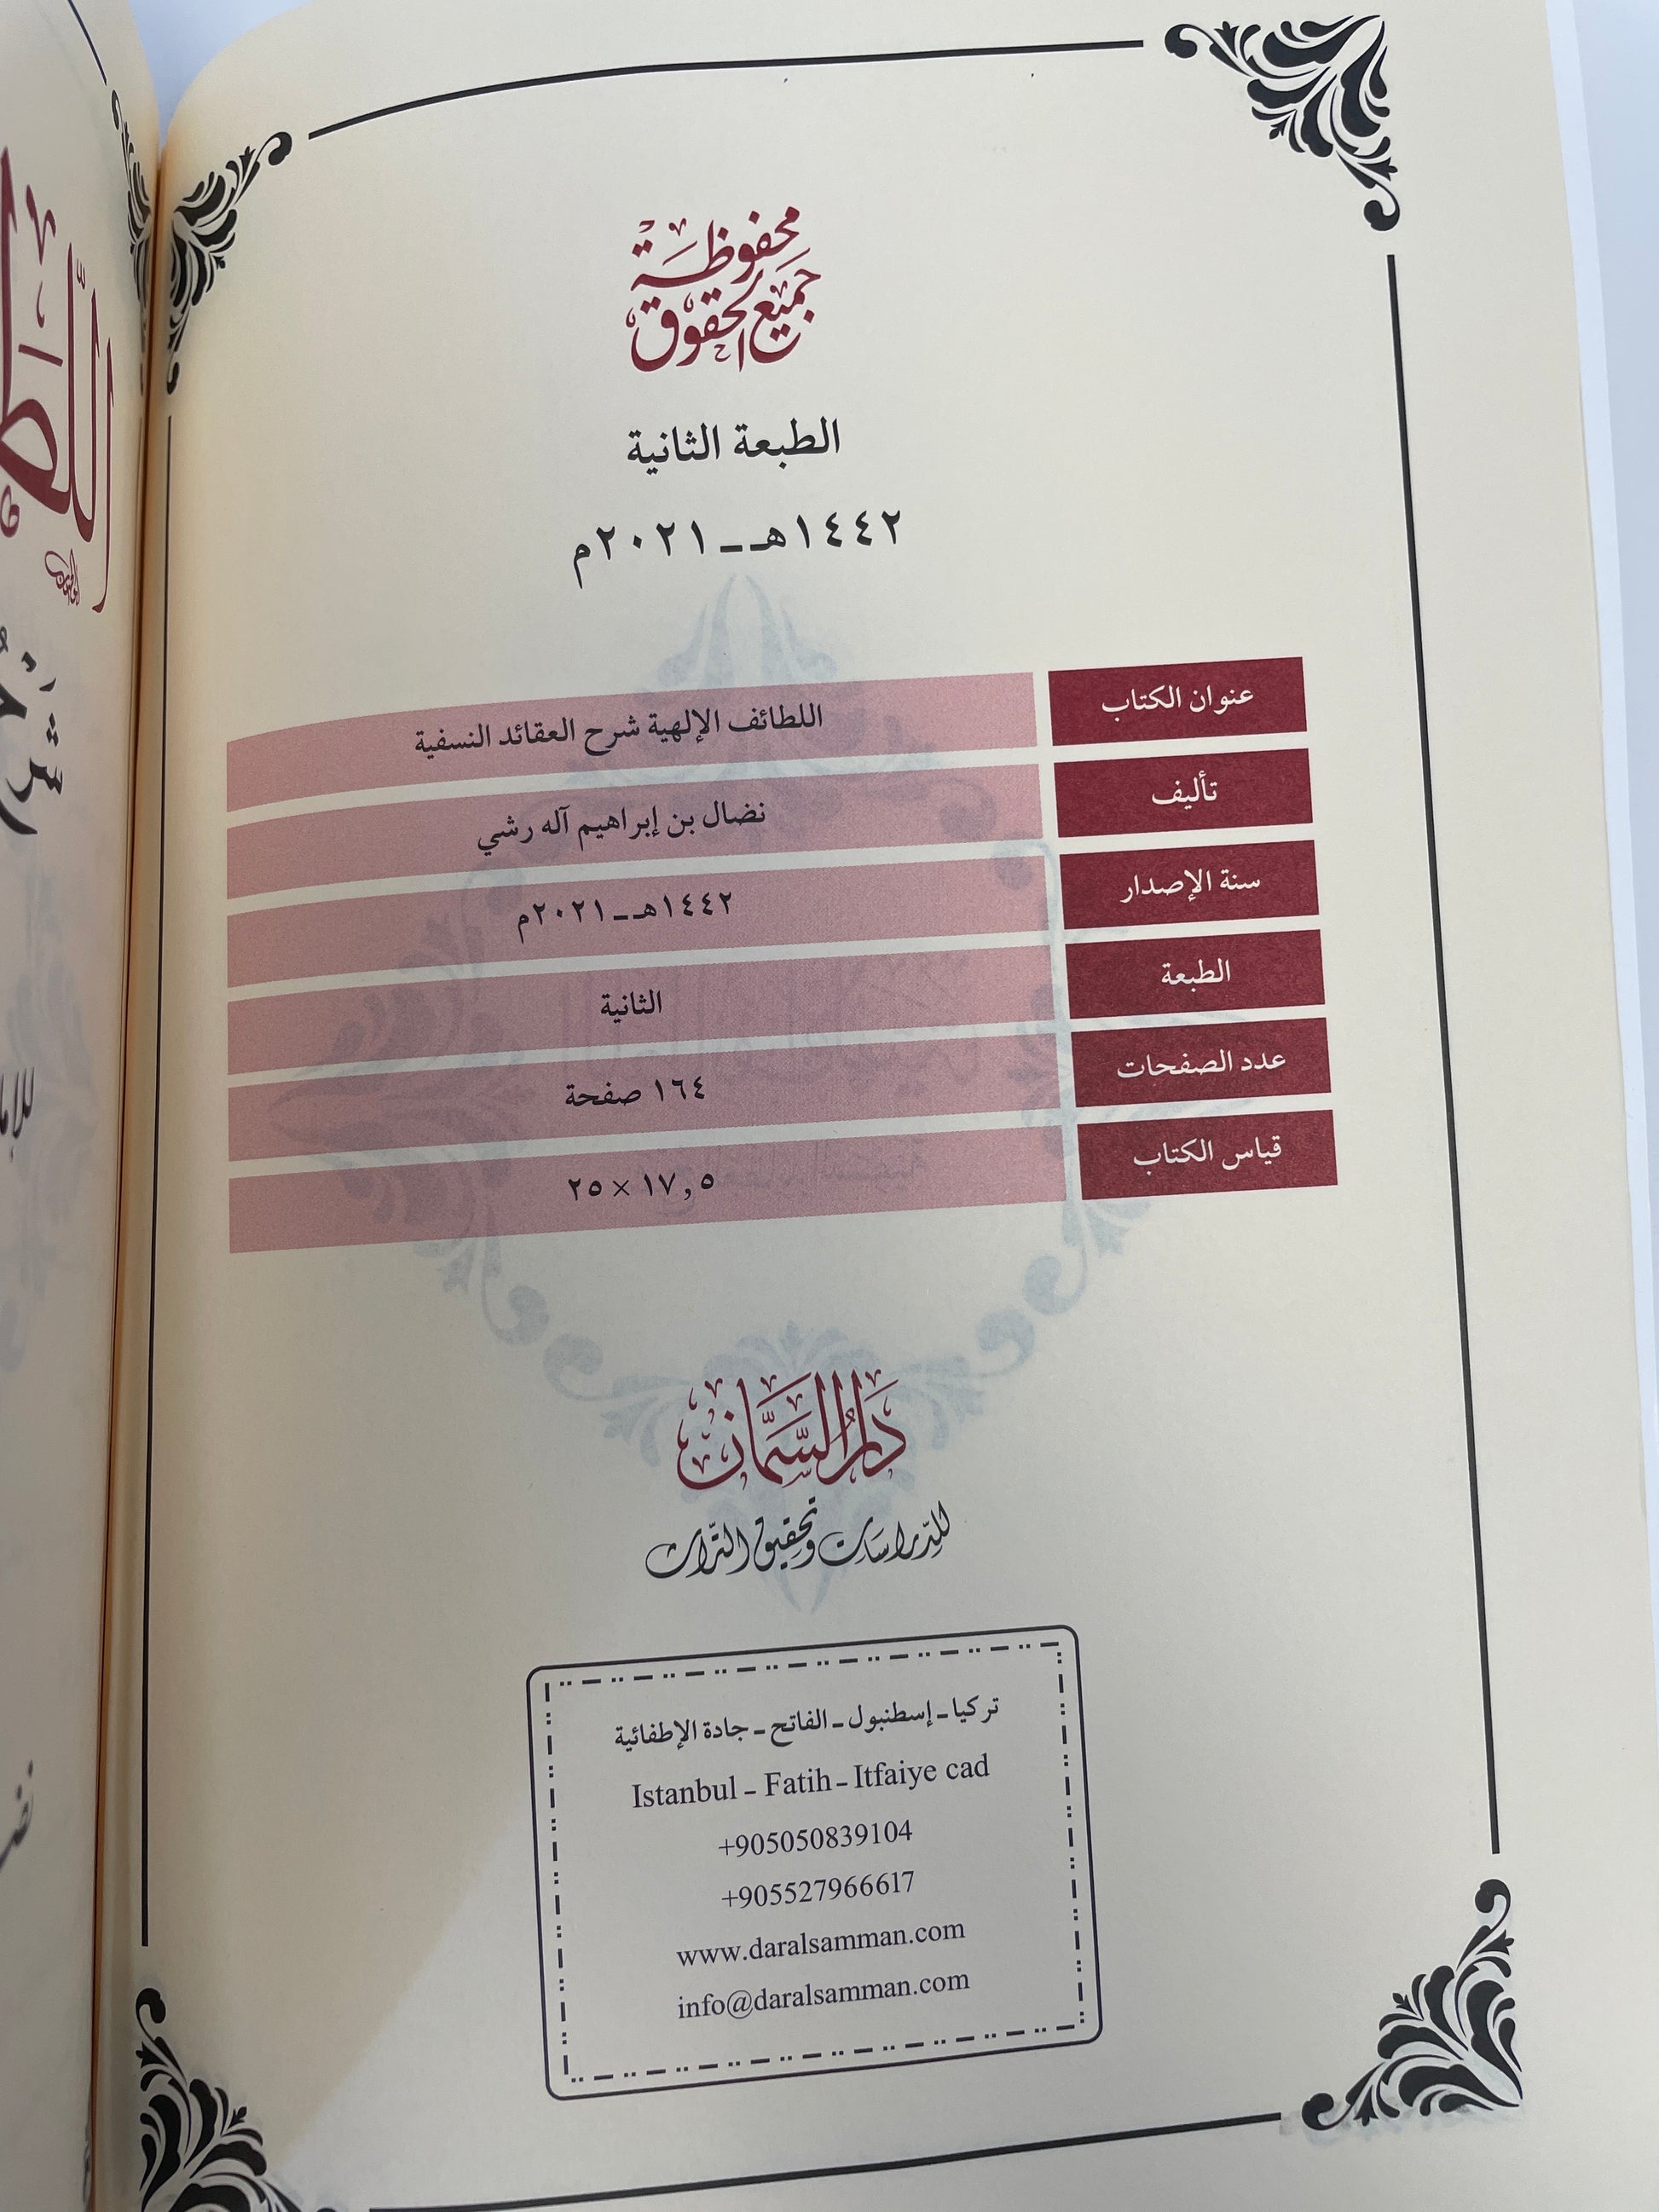 جميع الحقوق
محفوظة
الطبعة الثانية
١٤٤٢هـ ـ ٢٠٢١م
عنوان الكتاب اللطائف الإلهية شرح العقائد النسفية
تأليف نضال بن إبراهيم آله رشي
سنة الإصدار ١٤٤٢هـ ـ ٢٠٢١م
الطبعة الثانية
عدد الصفحات ١٦٤ صفحة
قياس الكتاب ١٧,٥ × ٢٥
دَارُ السَّمَّان
للدِّراسَات وتحقِيق التّراث
تركيا ـ إسطنبول ـ الفاتح ـ جادة الإطفائية
Istanbul – Fatih – Itfaiye cad
+905050839104
+905527966617
www.daralsamman.com
info@daralsamman.com